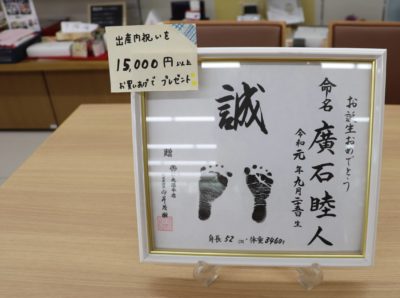 出産内祝いを
15,000円以上
お買いあげでプレゼント
お誕生おめでとう
命名 廣石睦人
令和元年九月二十五日生
誠
贈
身長 52 cm・体重 3960g